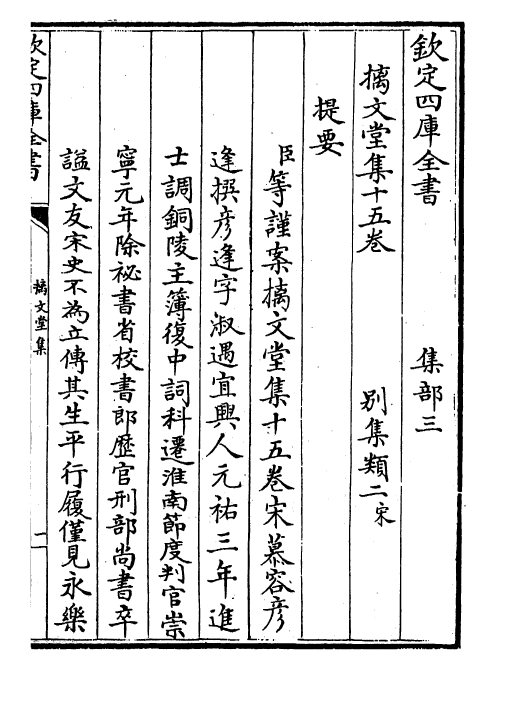 欽定四庫全書 集部三
摛文堂集十五卷 别集類二宋
提要
臣等謹案摛文堂集十五卷宋慕容彦
逢撰彦逢字淑遇宜興人元祐三年進
士調銅陵主簿復中詞科遷淮南節度判官崇
寧元年除祕書省校書郎歴官刑部尚書卒
謚文友宋史不為立傳其生平行履僅見永樂
欽定四庫全書 摛文堂集 一